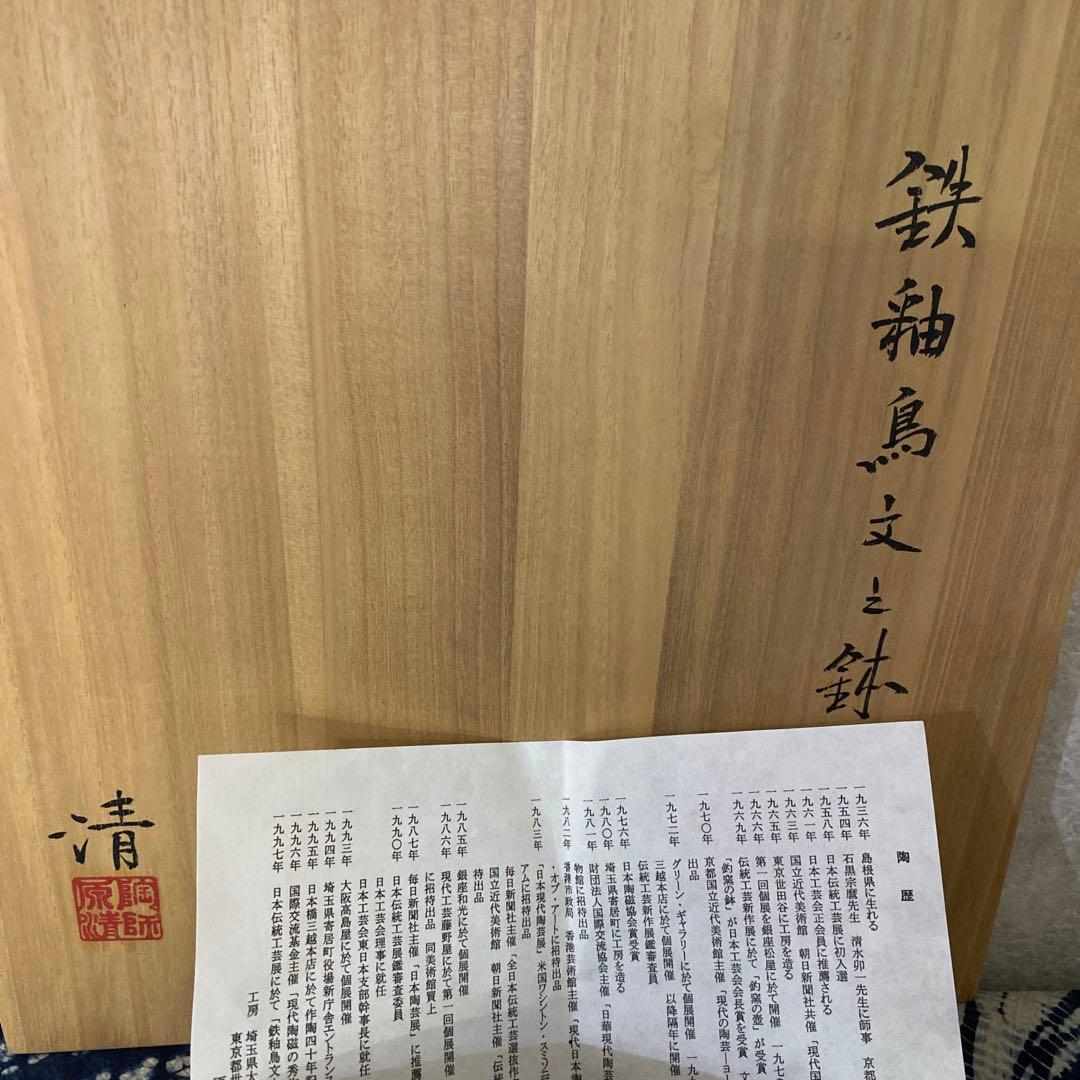 鉄釉鳥文之鉢
清
陶師
原清
陶歴
一九三六年 島根県に生れる
一九五四年 石黒宗麿先生 清水卯一先生に師事 京都
一九五八年 日本伝統工芸展に初入選
一九六一年 日本工芸会正会員に推薦される
一九六三年 国立近代美術館 朝日新聞社共催 「現代国
一九六五年 東京世田谷に工房を造る
一九六六年 第一回個展を銀座松屋にて開催
一九六九年 伝統工芸新作展に於て「釣窯の壺」が受賞
「釣窯の鉢」が日本工芸会会長賞を受賞 文
一九七〇年 京都国立近代美術館主催 「現代の陶芸ーヨー
出品
一九七二年 グリーン・ギャラリーにて個展開催
三越本店に於て個展開催 以降隔年に開催
伝統工芸新作展鑑審査員
一九七六年 日本陶磁協会賞受賞
一九八〇年 埼玉県寄居町に工房を造る
一九八一年 財団法人国際交流協会主催 「日華現代陶芸
物館に招待出品
一九八二年 香港市政局 香港芸術館主催 「現代日本陶
・オブ・アートに招待出品
一九八三年 「日本現代陶芸展」米国ワシントン・スミソニ
アムに招待出品
毎日新聞社主催 「全日本伝統工芸選抜作
国立近代美術館 朝日新聞社主催 「伝統
待出品
一九八五年 銀座和光にて個展開催
一九八六年 現代工芸藤野屋にて第一回個展開催
に招待出品 同美術館買上
一九八七年 毎日新聞社主催 「日本陶芸展」に推薦
一九九〇年 日本伝統工芸展鑑審査委員
日本工芸会理事に就任
日本工芸会東日本支部幹事長に就任
一九九三年 大阪高島屋にて個展開催
一九九四年 埼玉県寄居町役場新庁舎エントランス
一九九五年 日本橋三越本店にて作陶四十年
一九九六年 国際交流基金主催 「現代陶磁の秀
一九九七年 日本伝統工芸展に於て「鉄釉鳥文
工房 埼玉県大
東京都世